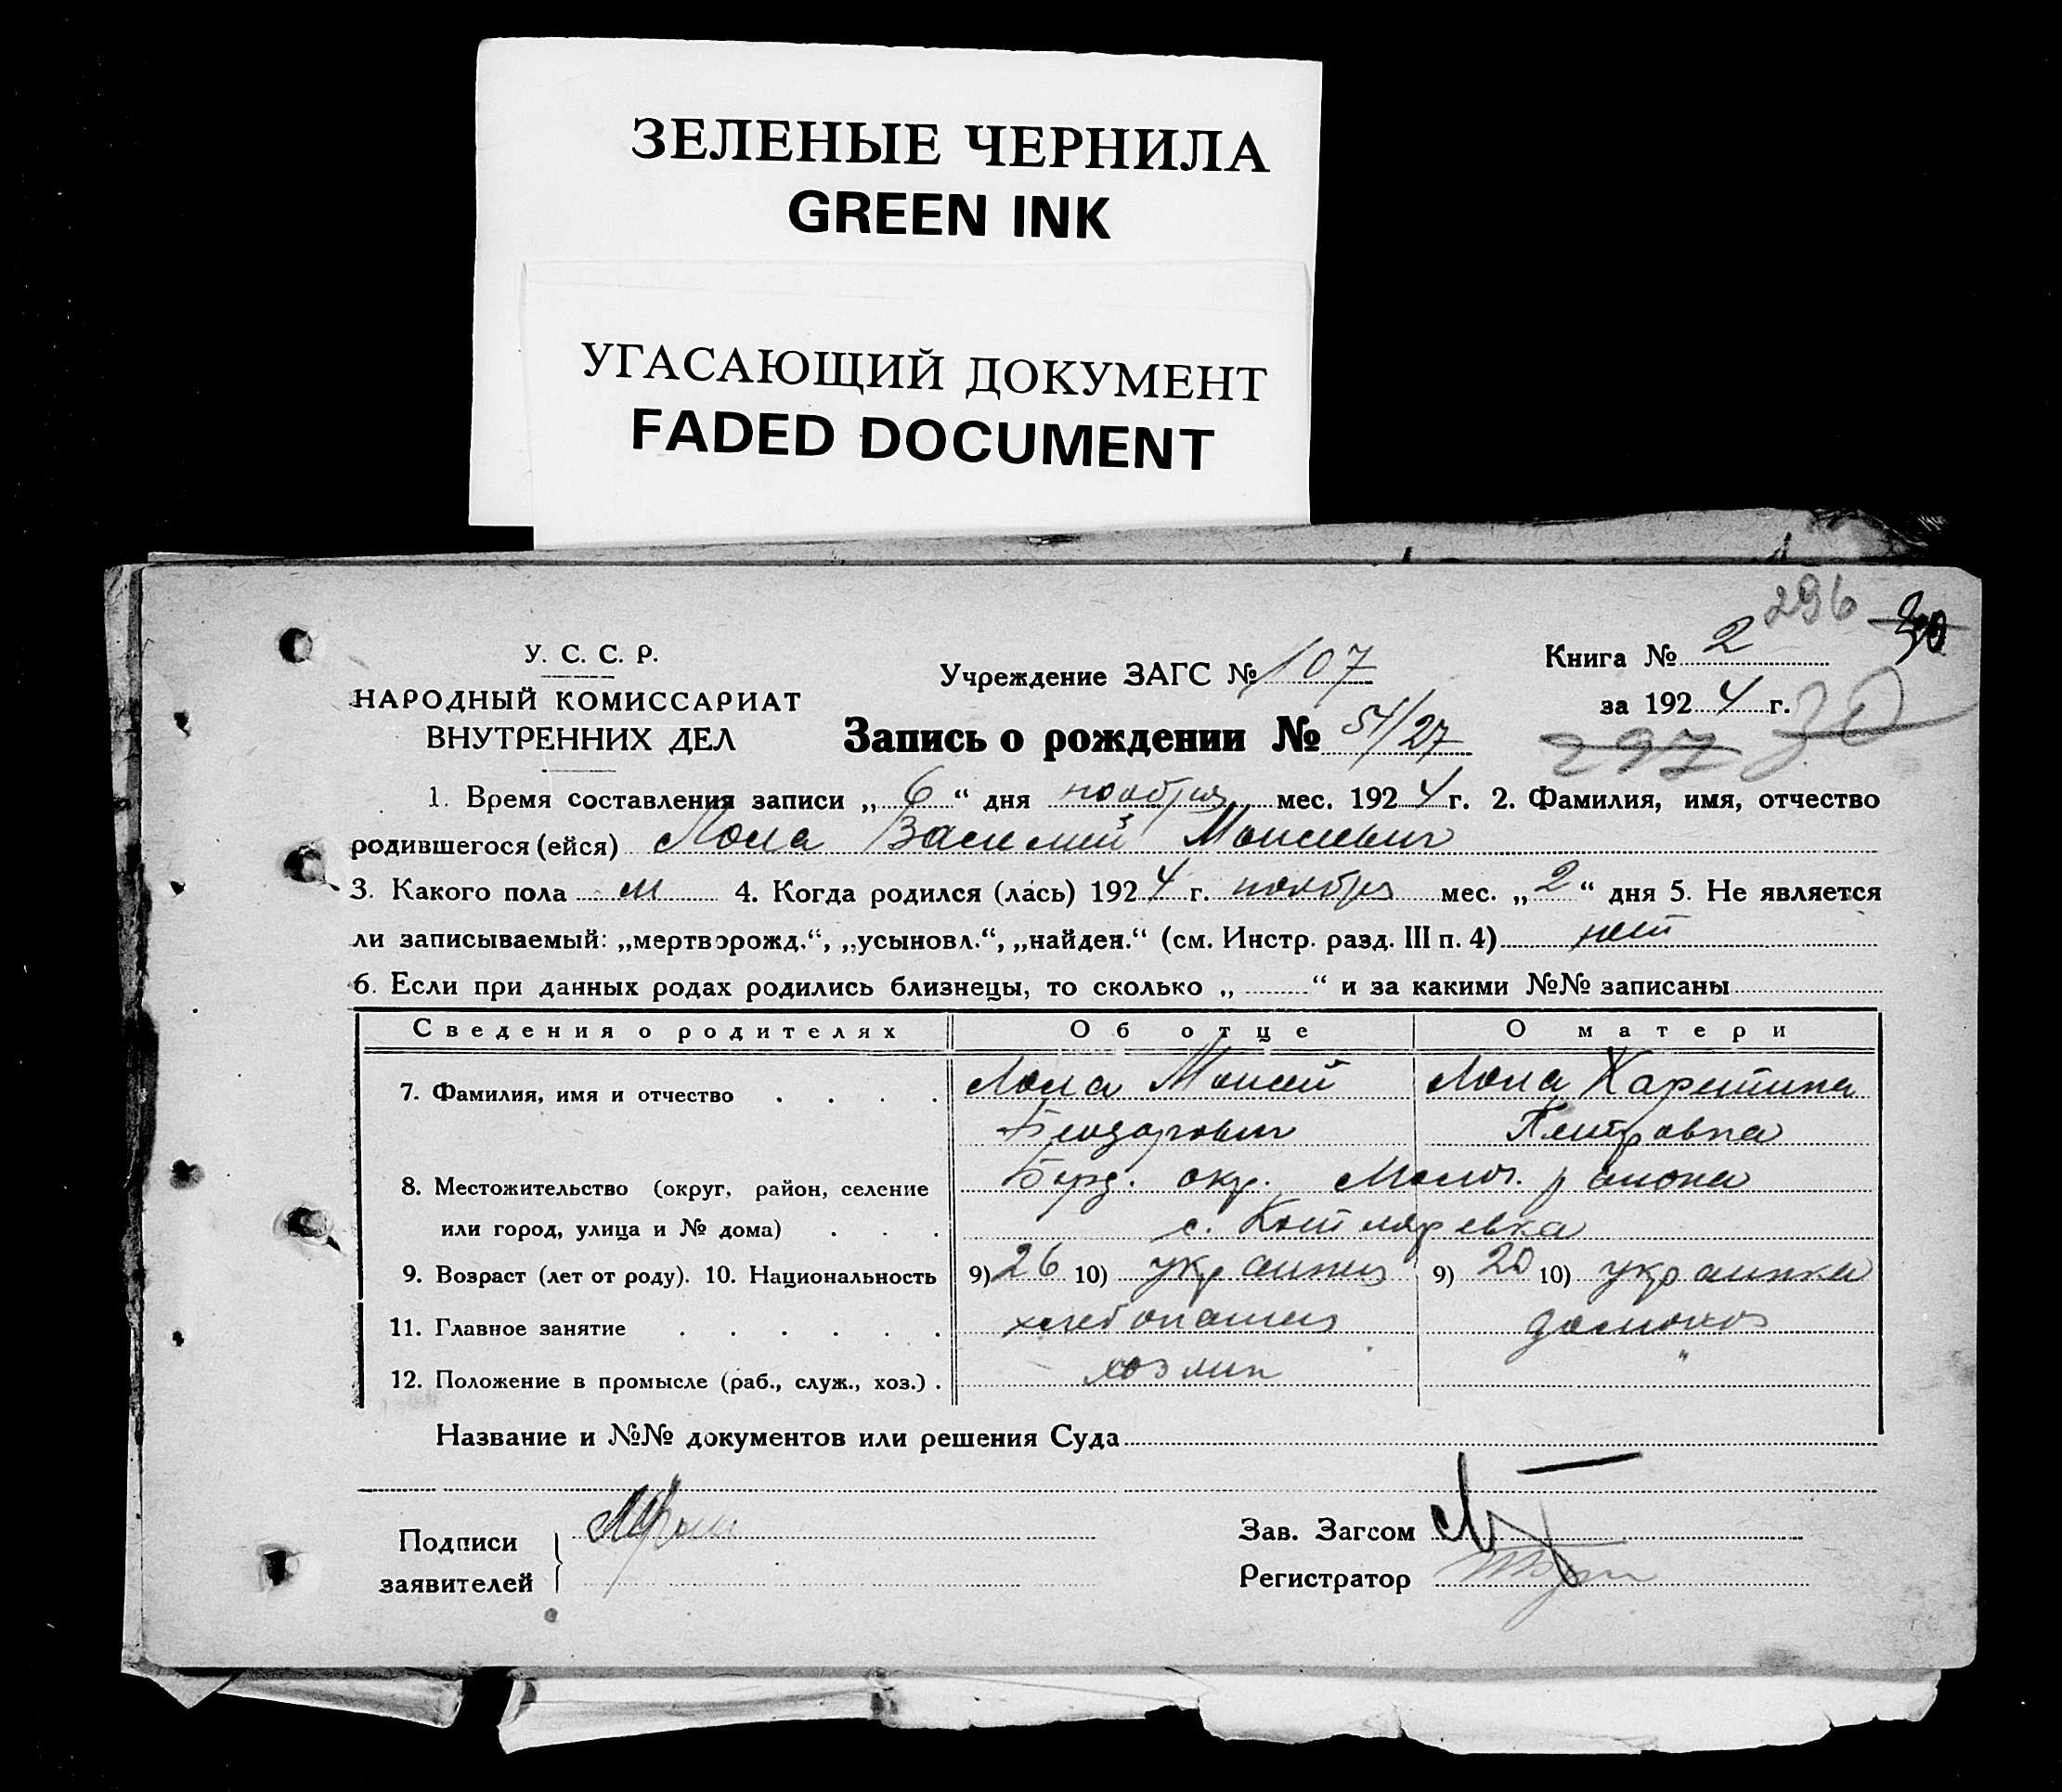 ЗЕЛЕНЫЕ ЧЕРНИЛА
GREEN INK
УГАСАЮЩИЙ ДОКУМЕНТ
FADED DOCUMENT
296
У. С. С. Р.
НАРОДНЫЙ КОМИССАРИАТ
ВНУТРЕННИХ ДЕЛ
Учреждение ЗАГС № 107
Книга № 2
за 1924 г.
30
297
Запись о рождении № 54/27
1. Время составления записи „6“ дня ноября мес. 1924 г. 2. Фамилия, имя, отчество
родившегося (ейся) Лола Василий Моисеевич
3. Какого пола м 4. Когда родился (лась) 1924 г. ноября мес. „2“ дня 5. Не является
ли записываемый: „мертворожд.“, „усыновл.“, „найден.“ (см. Инстр. разд. III п. 4) нет
6. Если при данных родах родились близнецы, то сколько „ “ и за какими №№ записаны
Сведения о родителях Об отце О матери
7. Фамилия, имя и отчество Лола Моисей Лола Харетина
Петровна
8. Местожительство (округ, район, селение Берд. окр. района
или город, улица и № дома) с. Котляревка
9. Возраст (лет от роду). 10. Национальность 9) 26 10) украинец 9) 20 10) украинка
11. Главное занятие хлебопашец домохоз
12. Положение в промысле (раб., служ., хоз.) хозяин "
Название и №№ документов или решения Суда
Подписи
заявителей
Зав. Загсом
Регистратор